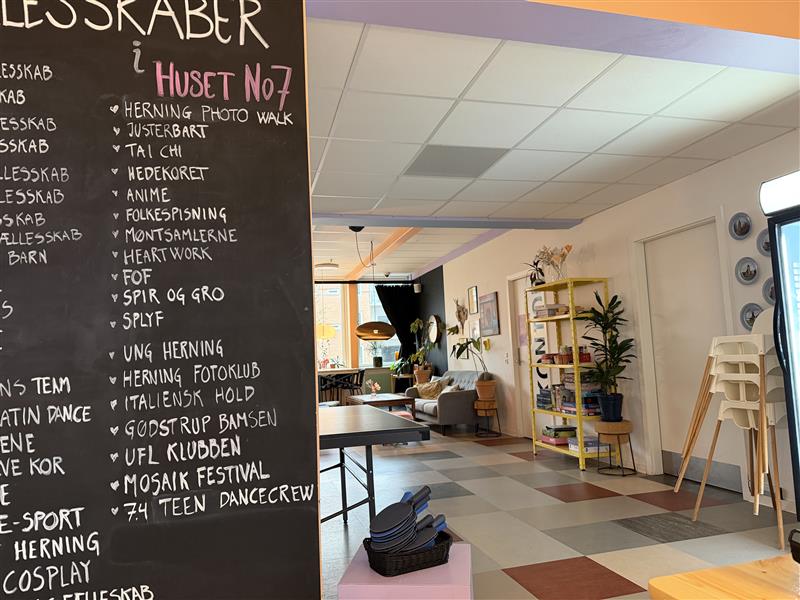 LESSKABER
i HUSET No7
LLESSKAB
KAB
LESSKAB
ESSKAB
LLESKAB
LESSKAB
SSKAB
ÆLLESSKAB
BARN
S
NS TEAM
ATIN DANCE
ENE
VE KOR
E
E-SPORT
HERNING
COSPLAY
HERNING PHOTO WALK
JUSTERBART
TAI CHI
HEDEKORET
ANIME
FOLKESPISNING
MØNTSAMLERNE
HEARTWORK
FOF
SPIR OG GRO
SPLYF
UNG HERNING
HERNING FOTOKLUB
ITALIENSK HOLD
GØDSTRUP BAMSEN
UFL KLUBBEN
MOSAIK FESTIVAL
7.4 TEEN DANCECREW